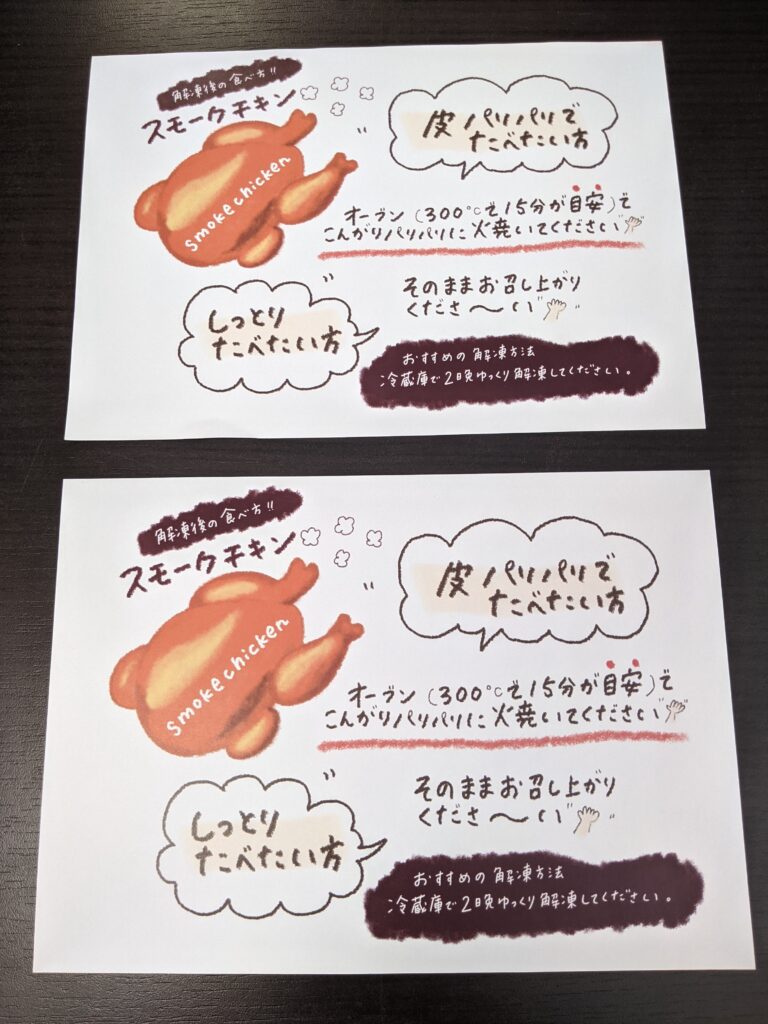 解凍後の食べ方!!
スモークチキン
smoke chicken
皮パリパリで
たべたい方
オーブン(300℃で15分が目安)で
こんがりパリパリに焼いてください
しっとり
たべたい方
そのままお召し上がり
くださ〜い
おすすめの解凍方法
冷蔵庫で2晩ゆっくり解凍してください。
解凍後の食べ方!!
スモークチキン
smoke chicken
皮パリパリで
たべたい方
オーブン(300℃で15分が目安)で
こんがりパリパリに焼いてください
しっとり
たべたい方
そのままお召し上がり
くださ〜い
おすすめの解凍方法
冷蔵庫で2晩ゆっくり解凍してください。